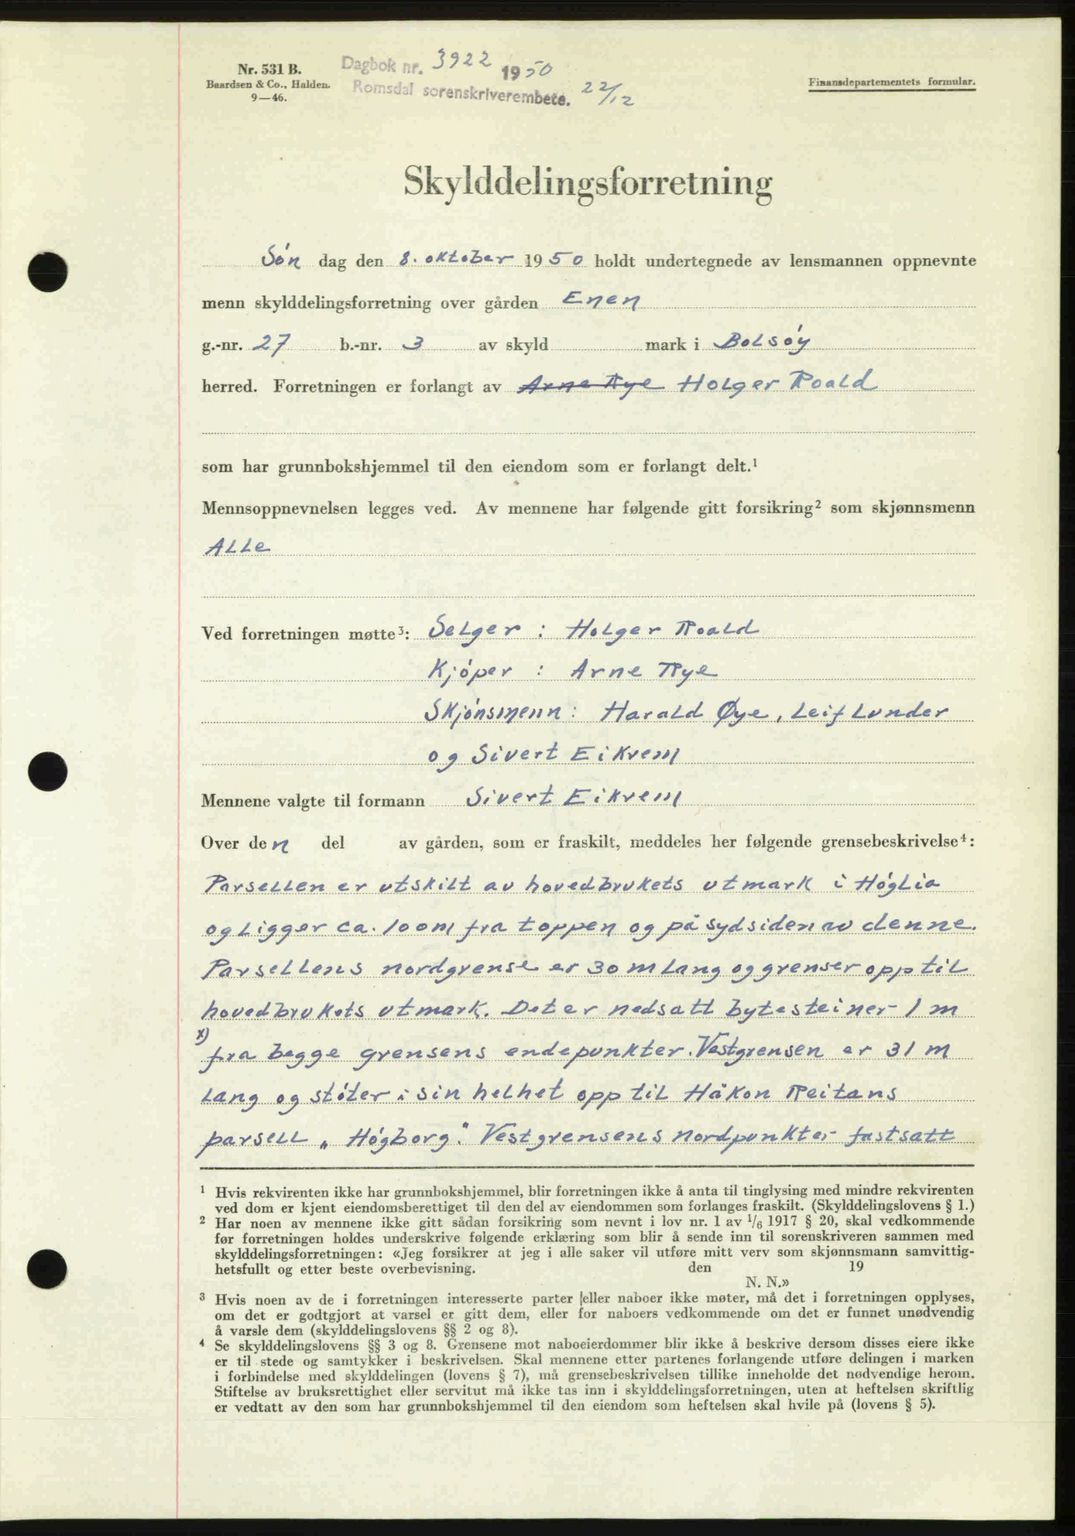 Nr. 531 B.
Baardsen & Co., Halden.
9—46.
Dagbok nr. 3922 1950
Romsdal sorenskriverembete. 22/12
Finansdepartementets formular.
Skylddelingsforretning
Søn dag den 8. oktober 1950 holdt undertegnede av lensmannen oppnevnte
menn skylddelingsforretning over gården Enen
g.-nr. 27 b.-nr. 3 av skyld mark i Bolsøy
herred. Forretningen er forlangt av Arne Rye Holger Roald
som har grunnbokshjemmel til den eiendom som er forlangt delt.¹
Mennsoppnevnelsen legges ved. Av mennene har følgende gitt forsikring² som skjønnsmenn
Alle
Ved forretningen møtte³: Selger : Holger Roald
Kjóper : Arne Rye
Skjónsmenn : Harald Øye, Leif Lunder
og Sivert Eikrem
Mennene valgte til formann Sivert Eikrem
Over den del av gården, som er fraskilt, meddeles her følgende grensebeskrivelse⁴:
Parsellen er utskilt av hovedbrukets utmark i Hóglia
og ligger ca. 100 m fra toppen og på sydsiden av denne.
Parsellens nordgrense er 30 m lang og grenser opp til
hovedbrukets utmark. Det er nedsatt bytesteiner 1 m
x) fra begge grensens endepunkter. Vestgrensen er 31 m
lang og stóter i sin helhet opp til Håkon Reitans
parsell „Hógborg". Vestgrensens nordpunkter fastsatt
¹ Hvis rekvirenten ikke har grunnbokshjemmel, blir forretningen ikke å anta til tinglysing med mindre rekvirenten
ved dom er kjent eiendomsberettiget til den del av eiendommen som forlanges fraskilt. (Skylddelingslovens § 1.)
² Har noen av mennene ikke gitt sådan forsikring som nevnt i lov nr. 1 av 1/6 1917 § 20, skal vedkommende
før forretningen holdes underskrive følgende erklæring som blir å sende inn til sorenskriveren sammen med
skylddelingsforretningen: «Jeg forsikrer at jeg i alle saker vil utføre mitt verv som skjønnsmann samvittig-
hetsfullt og etter beste overbevisning. den 19
N. N.»
³ Hvis noen av de i forretningen interesserte parter eller naboer ikke møter, må det i forretningen opplyses,
om det er godtgjort at varsel er gitt dem, eller for naboers vedkommende om det er funnet unødvendig
å varsle dem (skylddelingslovens §§ 2 og 8).
⁴ Se skylddelingslovens §§ 3 og 8. Grensene mot naboeierdommer blir ikke å beskrive dersom disses eiere ikke
er til stede og samtykker i beskrivelsen. Skal mennene etter partenes forlangende utføre delingen i marken
i forbindelse med skylddelingen (lovens § 7), må grensebeskrivelsen tillike inneholde det nødvendige herom.
Stiftelse av bruksrettighet eller servitut må ikke tas inn i skylddelingsforretningen, uten at heftelsen skriftlig
er vedtatt av den som har grunnbokshjemmel til den eiendom som heftelsen skal hvile på (lovens § 5).